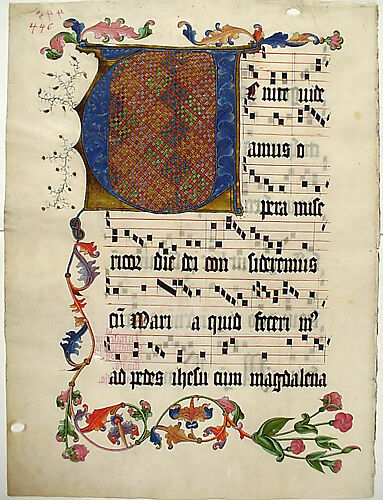 446
Venite vide
amus o
pera mise
ricor die dei con sideremus
cū Mari a quid feceri m9
ad pedes ihesu cum magdalena